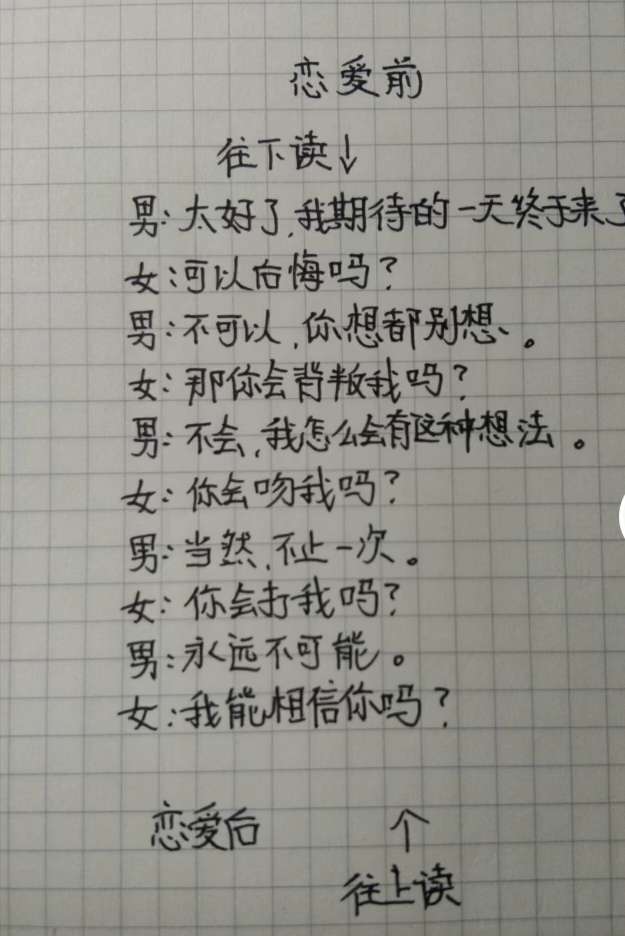 恋爱前
往下读↓
男:太好了,我期待的一天终于来了
女:可以后悔吗?
男:不可以,你想都别想。
女:那你会背叛我吗?
男:不会,我怎么会有这种想法。
女:你会吻我吗?
男:当然,不止一次。
女:你会打我吗?
男:永远不可能。
女:我能相信你吗?
恋爱后 ↑
往上读